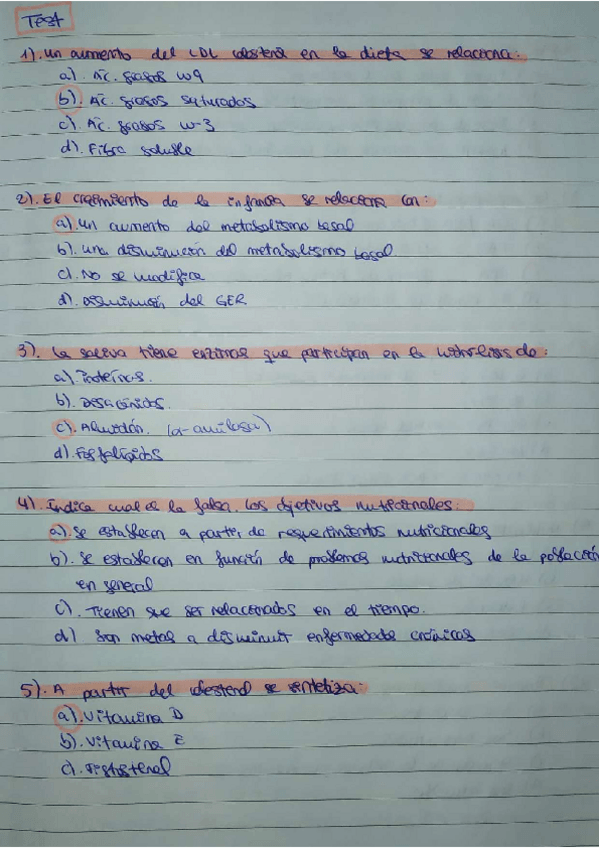 Test
1). Un aumento del LDL colesterol en la dieta se relaciona:
a). Ác. grasos w9
b). Ác. grasos saturados
c). Ác. grasos w-3
d). Fibra soluble
2). El crecimiento de la infancia se relaciona con:
a). Un aumento del metabolismo basal
b). una disminución del metabolismo basal
c). No se modifica
d). Disminución del GER
3). La saliva tiene enzimas que participan en la hidrólisis de:
a). Proteínas.
b). Disacáridos.
c). Almidón. (α-amilasa)
d). Fosfolípidos
4). Indica cual es la falsa. Los objetivos nutricionales:
a). Se establecen a partir de requerimientos nutricionales
b). Se establecen en función de problemas nutricionales de la población
en general
c). Tienen que ser relacionados en el tiempo.
d) Son metas a disminuir enfermedades crónicas
5). A partir del colesterol se sintetiza:
a). Vitamina D
b). Vitamina E
c).